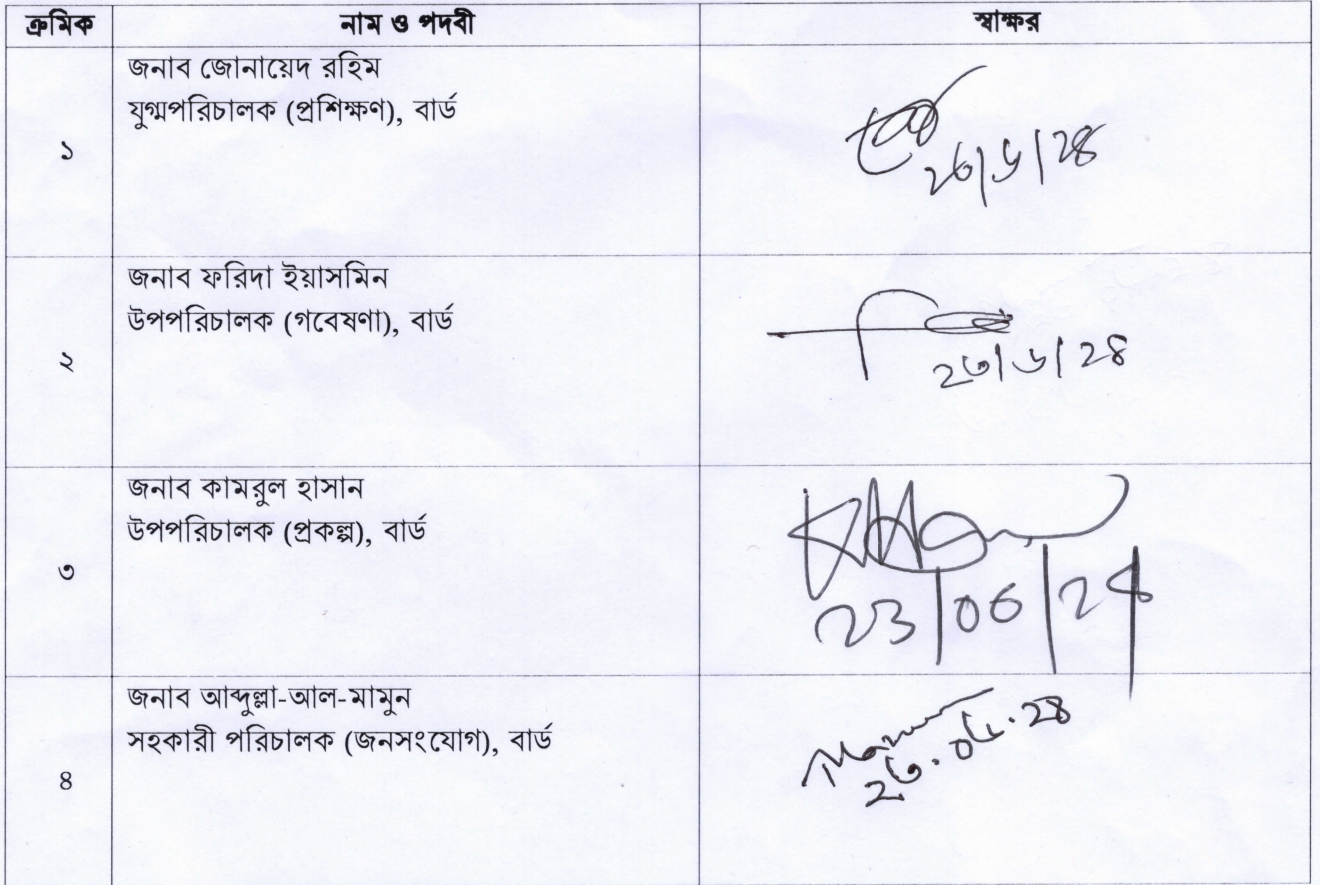 ক্রমিক নাম ও পদবী স্বাক্ষর
জনাব জোনায়েদ রহিম
যুগ্মপরিচালক (প্রশিক্ষণ), বার্ড
১
২৩|৬|২৪
জনাব ফরিদা ইয়াসমিন
উপপরিচালক (গবেষণা), বার্ড
২
২৩|৬|২৪
জনাব কামরুল হাসান
উপপরিচালক (প্রকল্প), বার্ড
৩
23|06|24
জনাব আব্দুল্লা-আল-মামুন
সহকারী পরিচালক (জনসংযোগ), বার্ড
৪
২৩.০৬.২৪